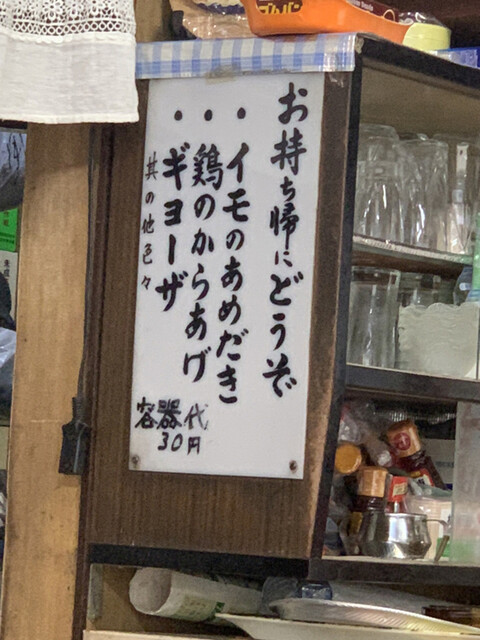 お持ち帰にどうぞ
・イモのあめだき
・鶏のからあげ
・ギョーザ
其の他色々
容器代
30円